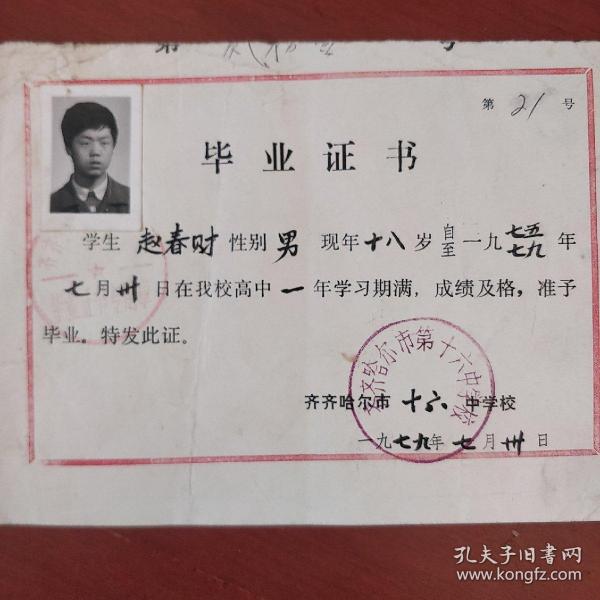 第 号
第 21 号
毕业证书
学生 赵春财 性别 男 现年十八岁 自至 一九 七五七九 年
七月卅日在我校高中一年学习期满，成绩及格，准予
毕业。特发此证。
齐齐哈尔市第十六中学校
齐齐哈尔市 十六 中学校
一九七九年七月卅日
孔夫子旧书网
www.kongfz.com